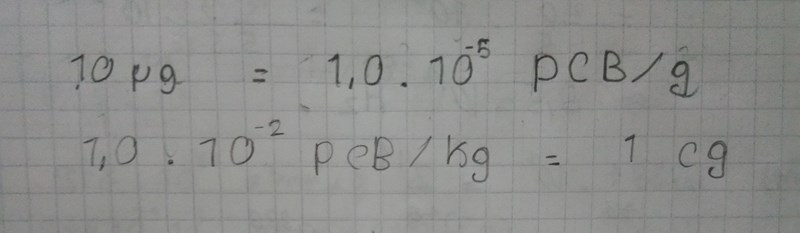 10 μg = 1,0 . 10⁻⁵ PCB/g
1,0 . 10⁻² PCB/kg = 1 cg